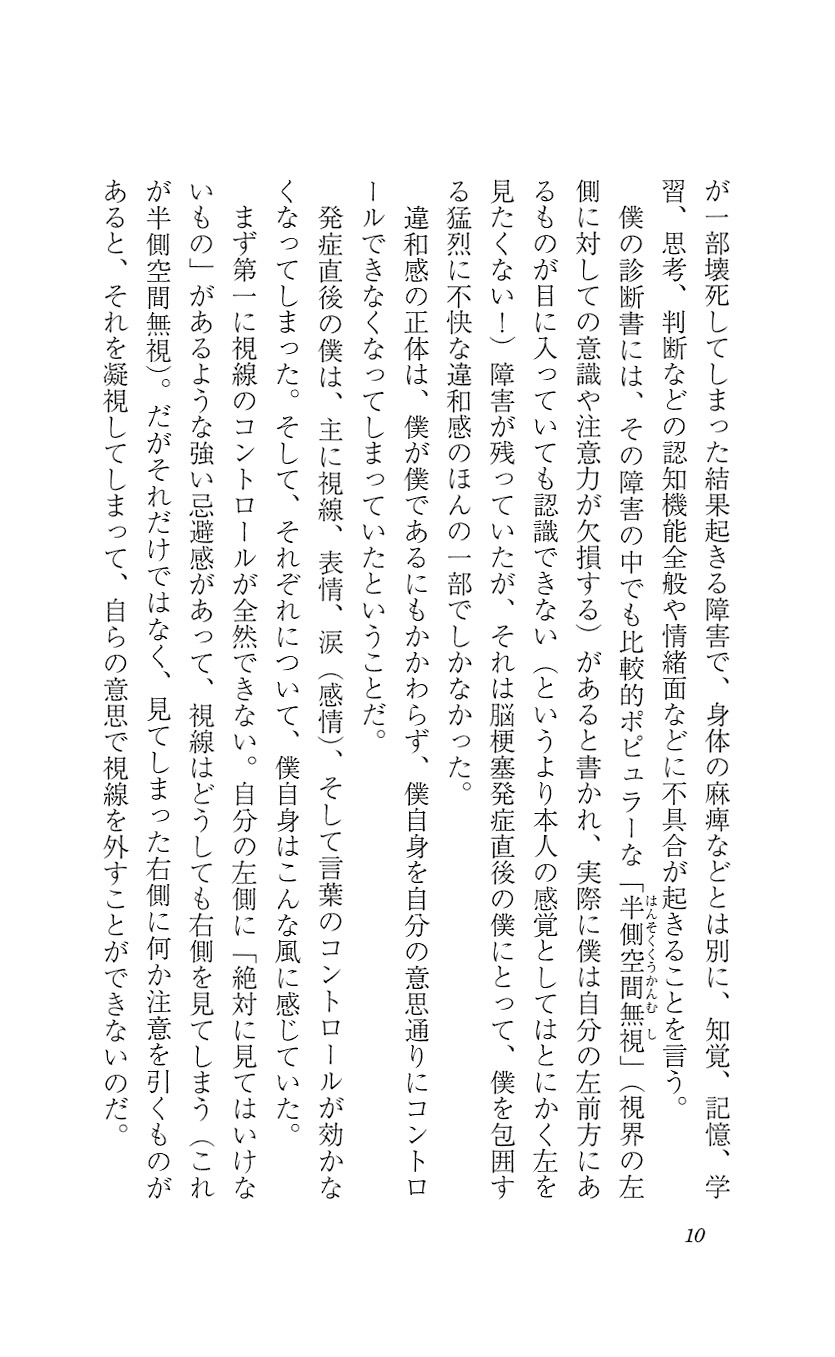 が一部壊死してしまった結果起きる障害で、身体の麻痺などとは別に、知覚、記憶、学
習、思考、判断などの認知機能全般や情緒面などに不具合が起きることを言う。
僕の診断書には、その障害の中でも比較的ポピュラーな「半側空間無視」（視界の左
はんそくくうかんむし
側に対しての意識や注意力が欠損する）があると書かれ、実際に僕は自分の左前方にあ
るものが目に入っていても認識できない（というより本人の感覚としてはとにかく左を
見たくない！）障害が残っていたが、それは脳梗塞発症直後の僕にとって、僕を包囲す
る猛烈に不快な違和感のほんの一部でしかなかった。
違和感の正体は、僕が僕であるにもかかわらず、僕自身を自分の意思通りにコントロ
ールできなくなってしまっていたということだ。
発症直後の僕は、主に視線、表情、涙（感情）、そして言葉のコントロールが効かな
くなってしまった。そして、それぞれについて、僕自身はこんな風に感じていた。
まず第一に視線のコントロールが全然できない。自分の左側に「絶対に見てはいけな
いもの」があるような強い忌避感があって、視線はどうしても右側を見てしまう（これ
が半側空間無視）。だがそれだけではなく、見てしまった右側に何か注意を引くものが
あると、それを凝視してしまって、自らの意思で視線を外すことができないのだ。
10